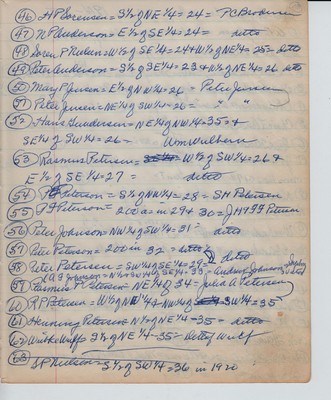 (46) H P Sorensen = S½ of NE¼ = 24 = P C Brodersen
(47) N P Anderson = E½ of SE¼ = 24 = ditto
(48) Soren P Nielsen = W½ of SE¼ = 24 + W½ of NE¼ = 25 = ditto
(49) Peter Anderson = S½ of SE¼ = 23 & N½ of NE¼ = 26 ditto
(50) Mary P Jensen = E½ of NW¼ = 26 = Peter Jensen
(51) Peter Jensen = NE¼ of SW¼ = 26 = " "
(52) Hans Gundersen = NE¼ of NW¼ = 35 = &
SE¼ of SW¼ = 26 = Wm Wulbern
(53) Rasmus Petersen = W½ of SW¼ = 26 &
E½ of SE¼ = 27 = ditto
(54) Peterson = S½ of NW¼ = 28 = S H Petersen
(55) P F Peterson = 200 as in 29 & 30 = Peterson
(56) Peter Johnson = NW¼ of SW¼ = 31 = ditto
(57) Peter Peterson = 200 in 32 = ditto
(58) Peter Petersen = SW¼ of SE¼ = 29 = ditto
Johnson = 33 = Andrew Johnson
(59) Rasmus P Peterson = NE¼ of 34 = Julia A Petersen
(60) R P Petersen = W½ of NW¼ & NW¼ of SW¼ = 35
(61) Henning Peterson = N½ of NE¼ = 35 = ditto
(62) Wulff = S½ of NE¼ = 35 = ditto Wulf
(63) S P Nielsen = S½ of SW¼ = 36 in 1920